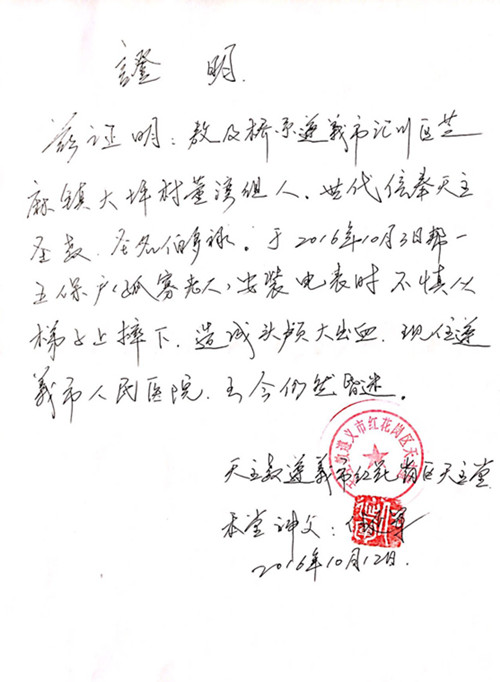 證 明.
兹证明：教友桥系遵義市汇川区芝
麻镇大坪村董湾组人、世代信奉天主
圣教、圣名伯多禄。于2016年10月3日帮一
五保户(孤寡老人)安装电表时不慎从
梯子上摔下、造成头颅大出血、现住遵
義市人民医院、至今仍然昏迷。
天主教遵義市红花岗区天主堂
本堂神父：
2016年10月12日.
遵义市红花岗区天主